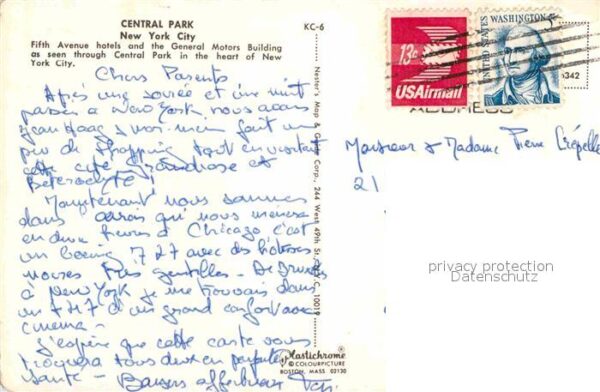 CENTRAL PARK
New York City
KC-6
Fifth Avenue hotels and the General Motors Building
as seen through Central Park in the heart of New
York City.
Chers Parents
Après une soirée et une nuit
passée à New York, nous avons
Jean Haag & moi-même fait un
peu de shopping tout en visitant
cette cité grandiose et
Maintenant nous sommes
dans avion qui nous mènera
en deux heures à Chicago c'est
un boeing 727 avec des hôtesses
très gentilles - De
à New York je me trouvais dans
un 747 d'un grand confort avec
cinéma -
J'espère que cette carte vous
trouvera tous deux en parfaite
santé - Baisers affectueux
Nester's Map & Guide Corp., 244 West 49th St., N.Y.C. 10019
Plastichrome®
© COLOURPICTURE
BOSTON, MASS. 02130
13c
USAirmail
WASHINGTON 5c
UNITED STATES
342
ADDRESS
Monsieur & Madame Pierre Crépelle
21
privacy protection
Datenschutz